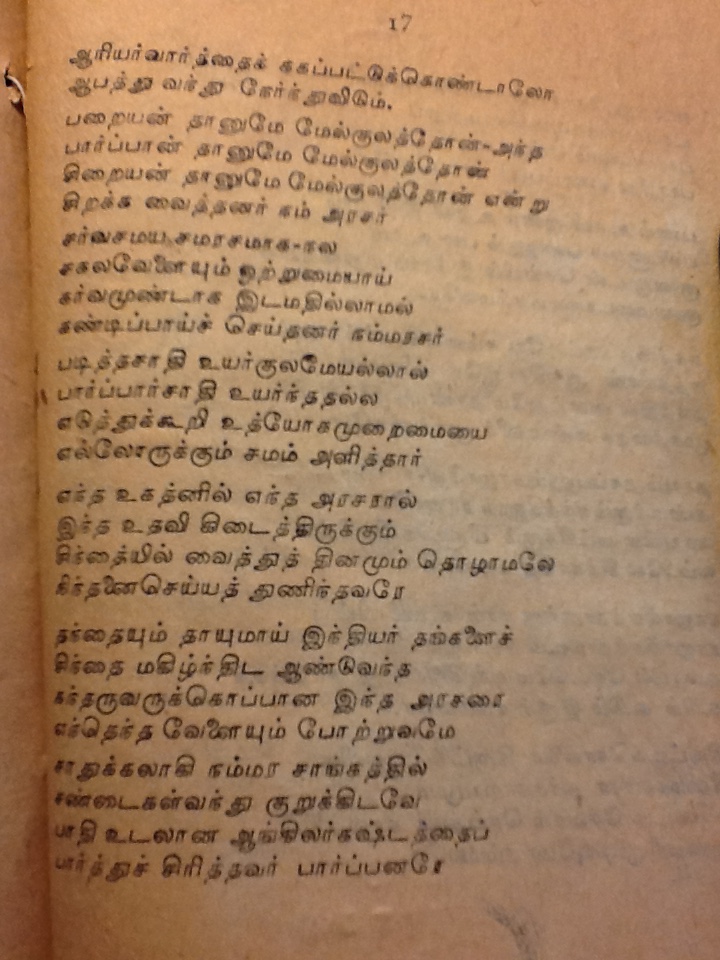 17
ஆரியர்வார்த்தைக் ககப்பட்டுக்கொண்டாலோ
ஆபத்து வந்து நேர்ந்துவிடும்.
பறையன் தானுமே மேல்குலத்தோன்-அந்த
பார்ப்பான் தானுமே மேல்குலத்தோன்
சிறையன் தானுமே மேல்குலத்தோன் என்று
சிறக்க வைத்தனர் நம் அரசர்
சர்வசமய சமரசமாக-நல
சகலவேளையும் ஒற்றுமையாய்
கர்வமுண்டாக இடமதில்லாமல்
கண்டிப்பாய்ச் செய்தனர் நம்மரசர்
படித்தசாதி உயர்குலமேயல்லால்
பார்ப்பார்சாதி உயர்ந்ததல்ல
எடுத்துக்கூறி உத்யோகமுறைமையை
எல்லோருக்கும் சமம் அளித்தார்
எந்த உகத்னில் எந்த அரசரால்
இந்த உதவி கிடைத்திருக்கும்
சிந்தையில் வைத்துத் தினமும் தொழாமலே
நிந்தனைசெய்யத் துணிந்தவரே
தந்தையும் தாயுமாய் இந்தியர் தங்களைச்
சிந்தை மகிழ்ந்திட ஆண்டுவந்த
கந்தருவருக்கொப்பான இந்த அரசரை
எந்தெந்த வேளையும் போற்றுவமே
சாதுக்கலாகி நம்மர சாங்கத்தில்
சண்டைகள்வந்து குறுக்கிடவே
பாதி உடலான ஆங்கிலர்கஷ்டத்தைப்
பார்த்துச் சிரித்தவர் பார்ப்பனரே